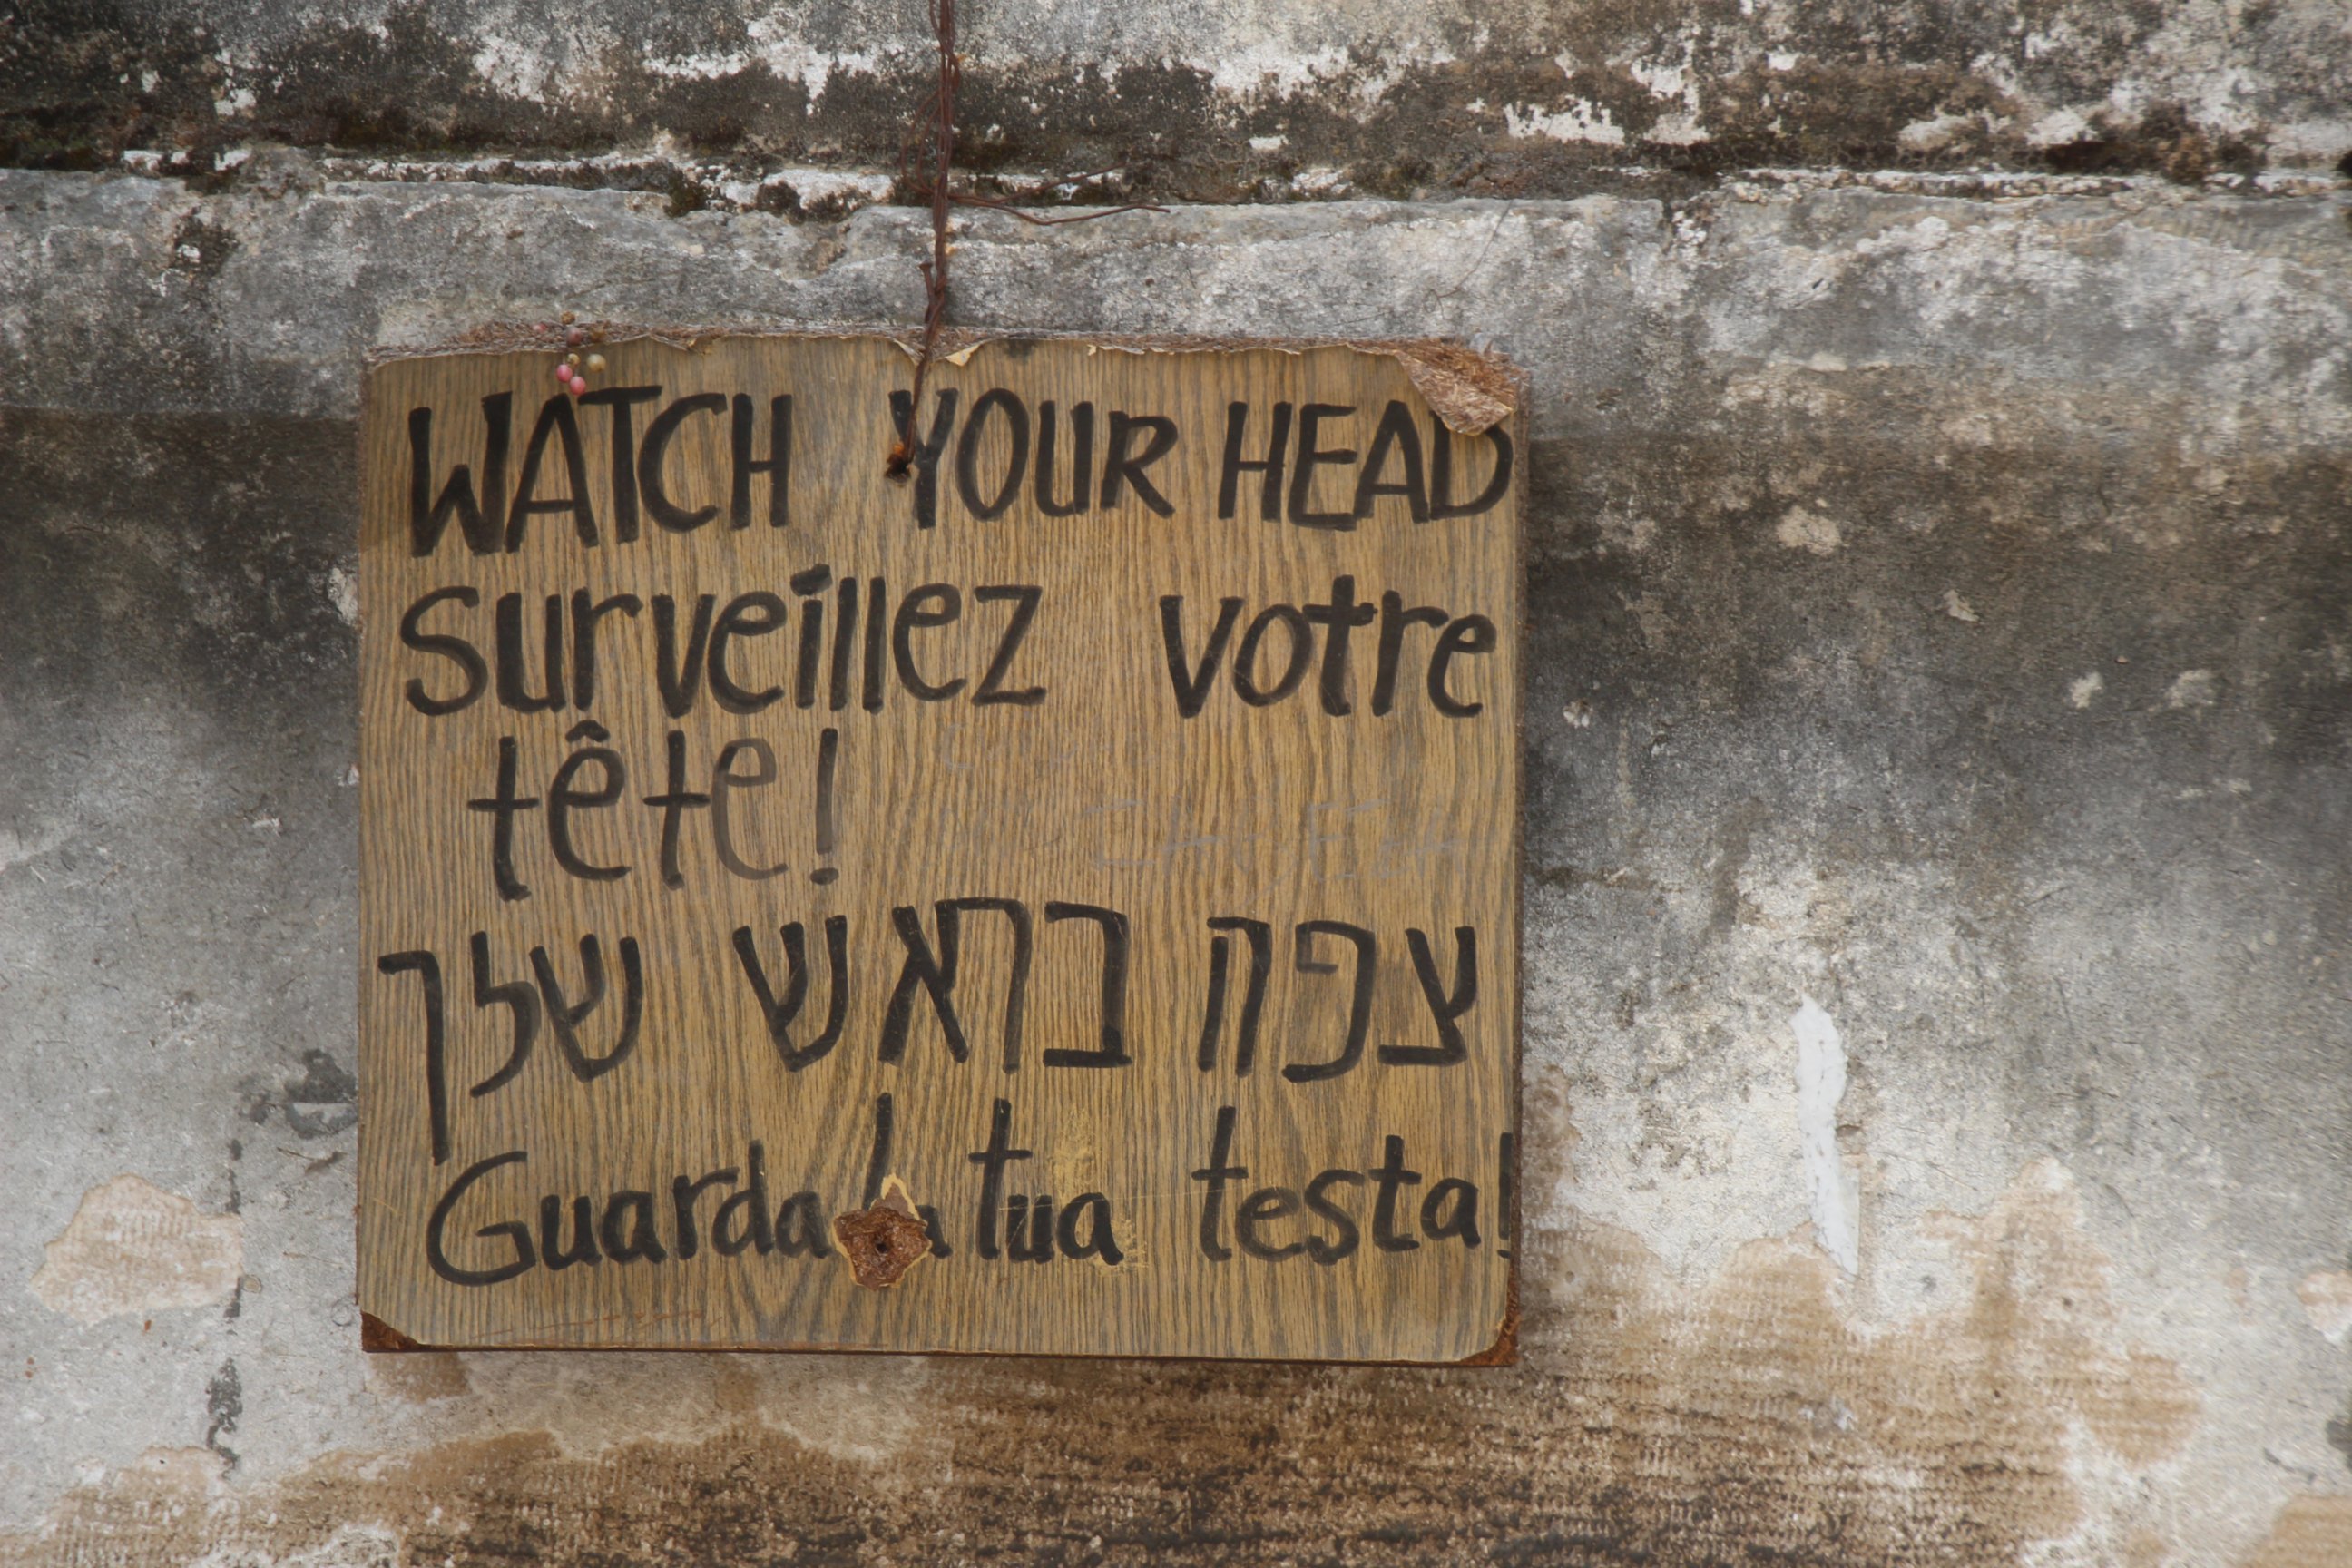 WATCH YOUR HEAD
surveillez votre
tête!
צפה בראש שלך
Guarda la tua testa!